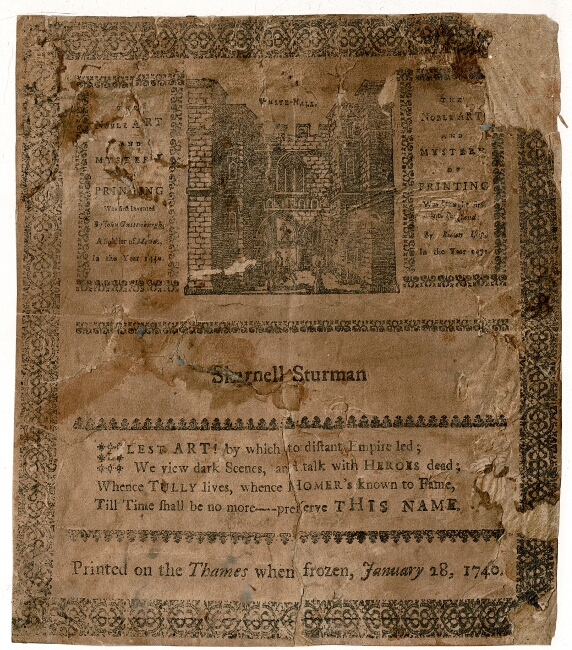 WHITE-HALL.
NOBLE ART
AND
MYSTERY
PRINTING
Was first Invented
By John
A Soldier of
In the Year 1440.
THE
NOBLE ART
AND
MYSTERY
OF
PRINTING
Was
By
In the Year
Sturman
BLEST ART! by which to distant Empire led;
We view dark Scenes, and talk with HEROES dead;
Whence TULLY lives, whence HOMER's known to Fame,
Till Time shall be no more—preserve THIS NAME.
Printed on the Thames when frozen, January 28, 1740.